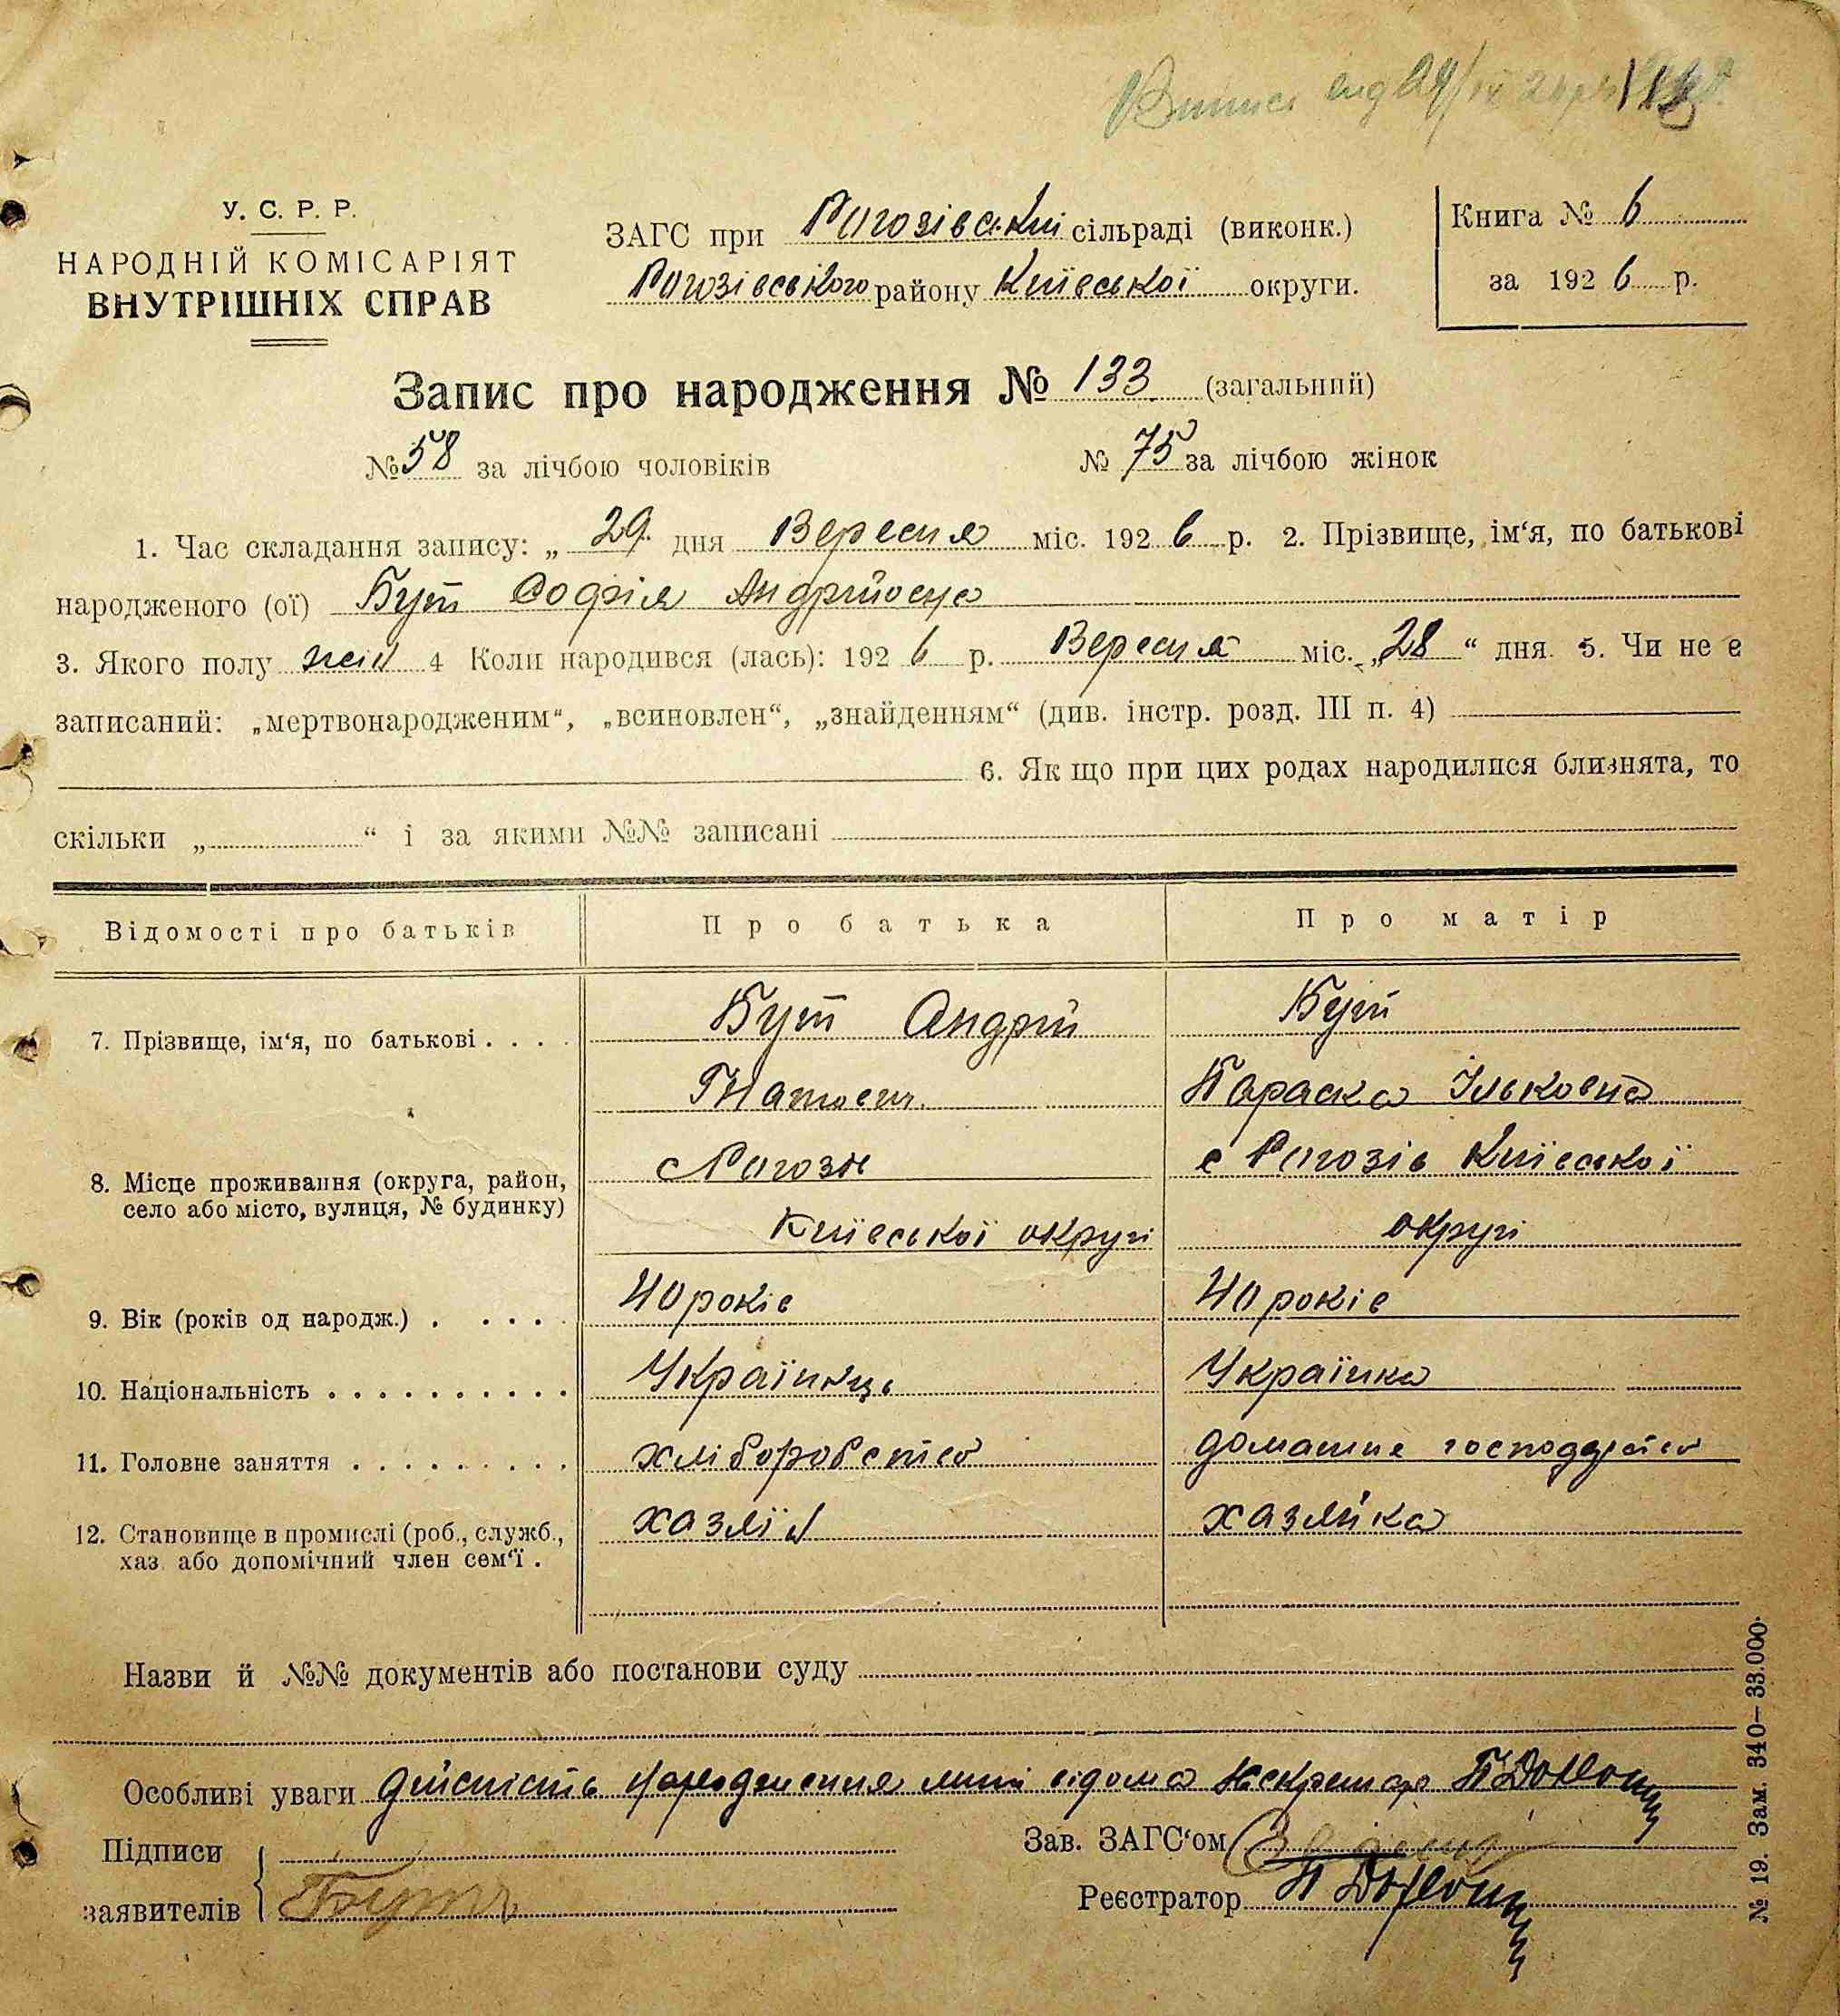 Випис вид 29/IX
У. С. Р. Р.
НАРОДНІЙ КОМІСАРІЯТ
ВНУТРІШНІХ СПРАВ
ЗАГС при Рогозівській сільраді (виконк.)
Рогозівського району Київської округи.
Книга № 6
за 1926 р.
Запис про народження № 133 (загальний)
№ 58 за лічбою чоловіків № 75 за лічбою жінок
1. Час складання запису: „ 29 дня Вересня міс. 1926 р. 2. Прізвище, ім‘я, по батькові
народженого (ої) Бут Софія Андрійовна
3. Якого полу жін 4 Коли народився (лась): 1926 р. Вересня міс. „28“ дня. 5. Чи не є
записаний: „мертвонародженим“, „всиновлен“, „знайденням“ (див. інстр. розд. III п. 4)
6. Як що при цих родах народилися близнята, то
скільки „ “ і за якими №№ записані
Відомості про батьків Про батька Про матір
7. Прізвище, ім‘я, по батькові . . . . Бут Андрій Бут
Гнатович. Параска Ільковна
8. Місце проживання (округа, район, с Рогозів с Рогозів Київської
село або місто, вулиця, № будинку) Київської округи округи
9. Вік (років од народж.) . . . . . 40 років 40 років
10. Національність . . . . . . . . . . Українець Українка
11. Головне заняття . . . . . . . . . хліборобство домашне господарство
12. Становище в промислі (роб., служб., хазяїн хазяйка
хаз. або допомічний член сем‘ї .
Назви й №№ документів або постанови суду
Особливі уваги дійсність народження мині відома секретар
Підписи
заявителів Бут
Зав. ЗАГС‘ом
Реєстратор
№ 19. Зам. 340–33.000.